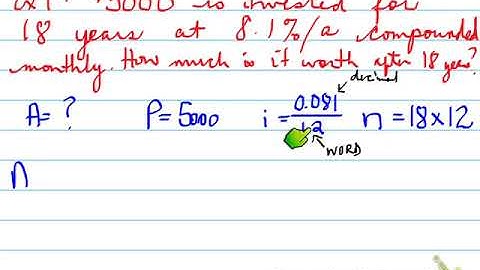 5000 is invested for
18 years at 8.1%/a compounded
monthly. How much is it worth after 18 years?
decimal
A = ? P = 5000 i = 0.081/12 n = 18x12
WORD
n